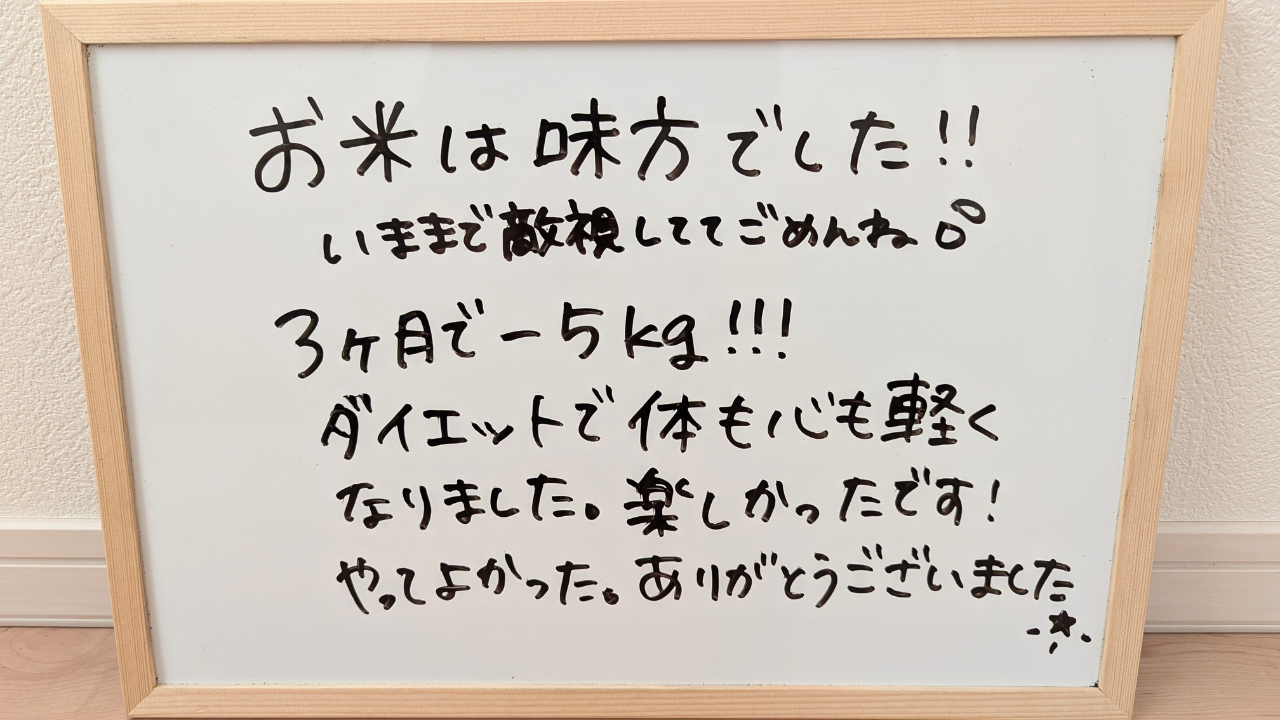 お米は味方でした!!
いままで敵視しててごめんね
3ヶ月で-5kg!!!
ダイエットで体も心も軽く
なりました。楽しかったです!
やってよかった。ありがとうございました